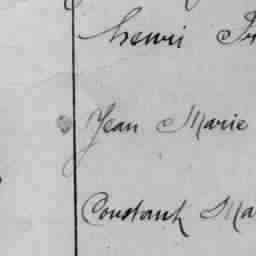 henri
Jean Marie
Constant Ma